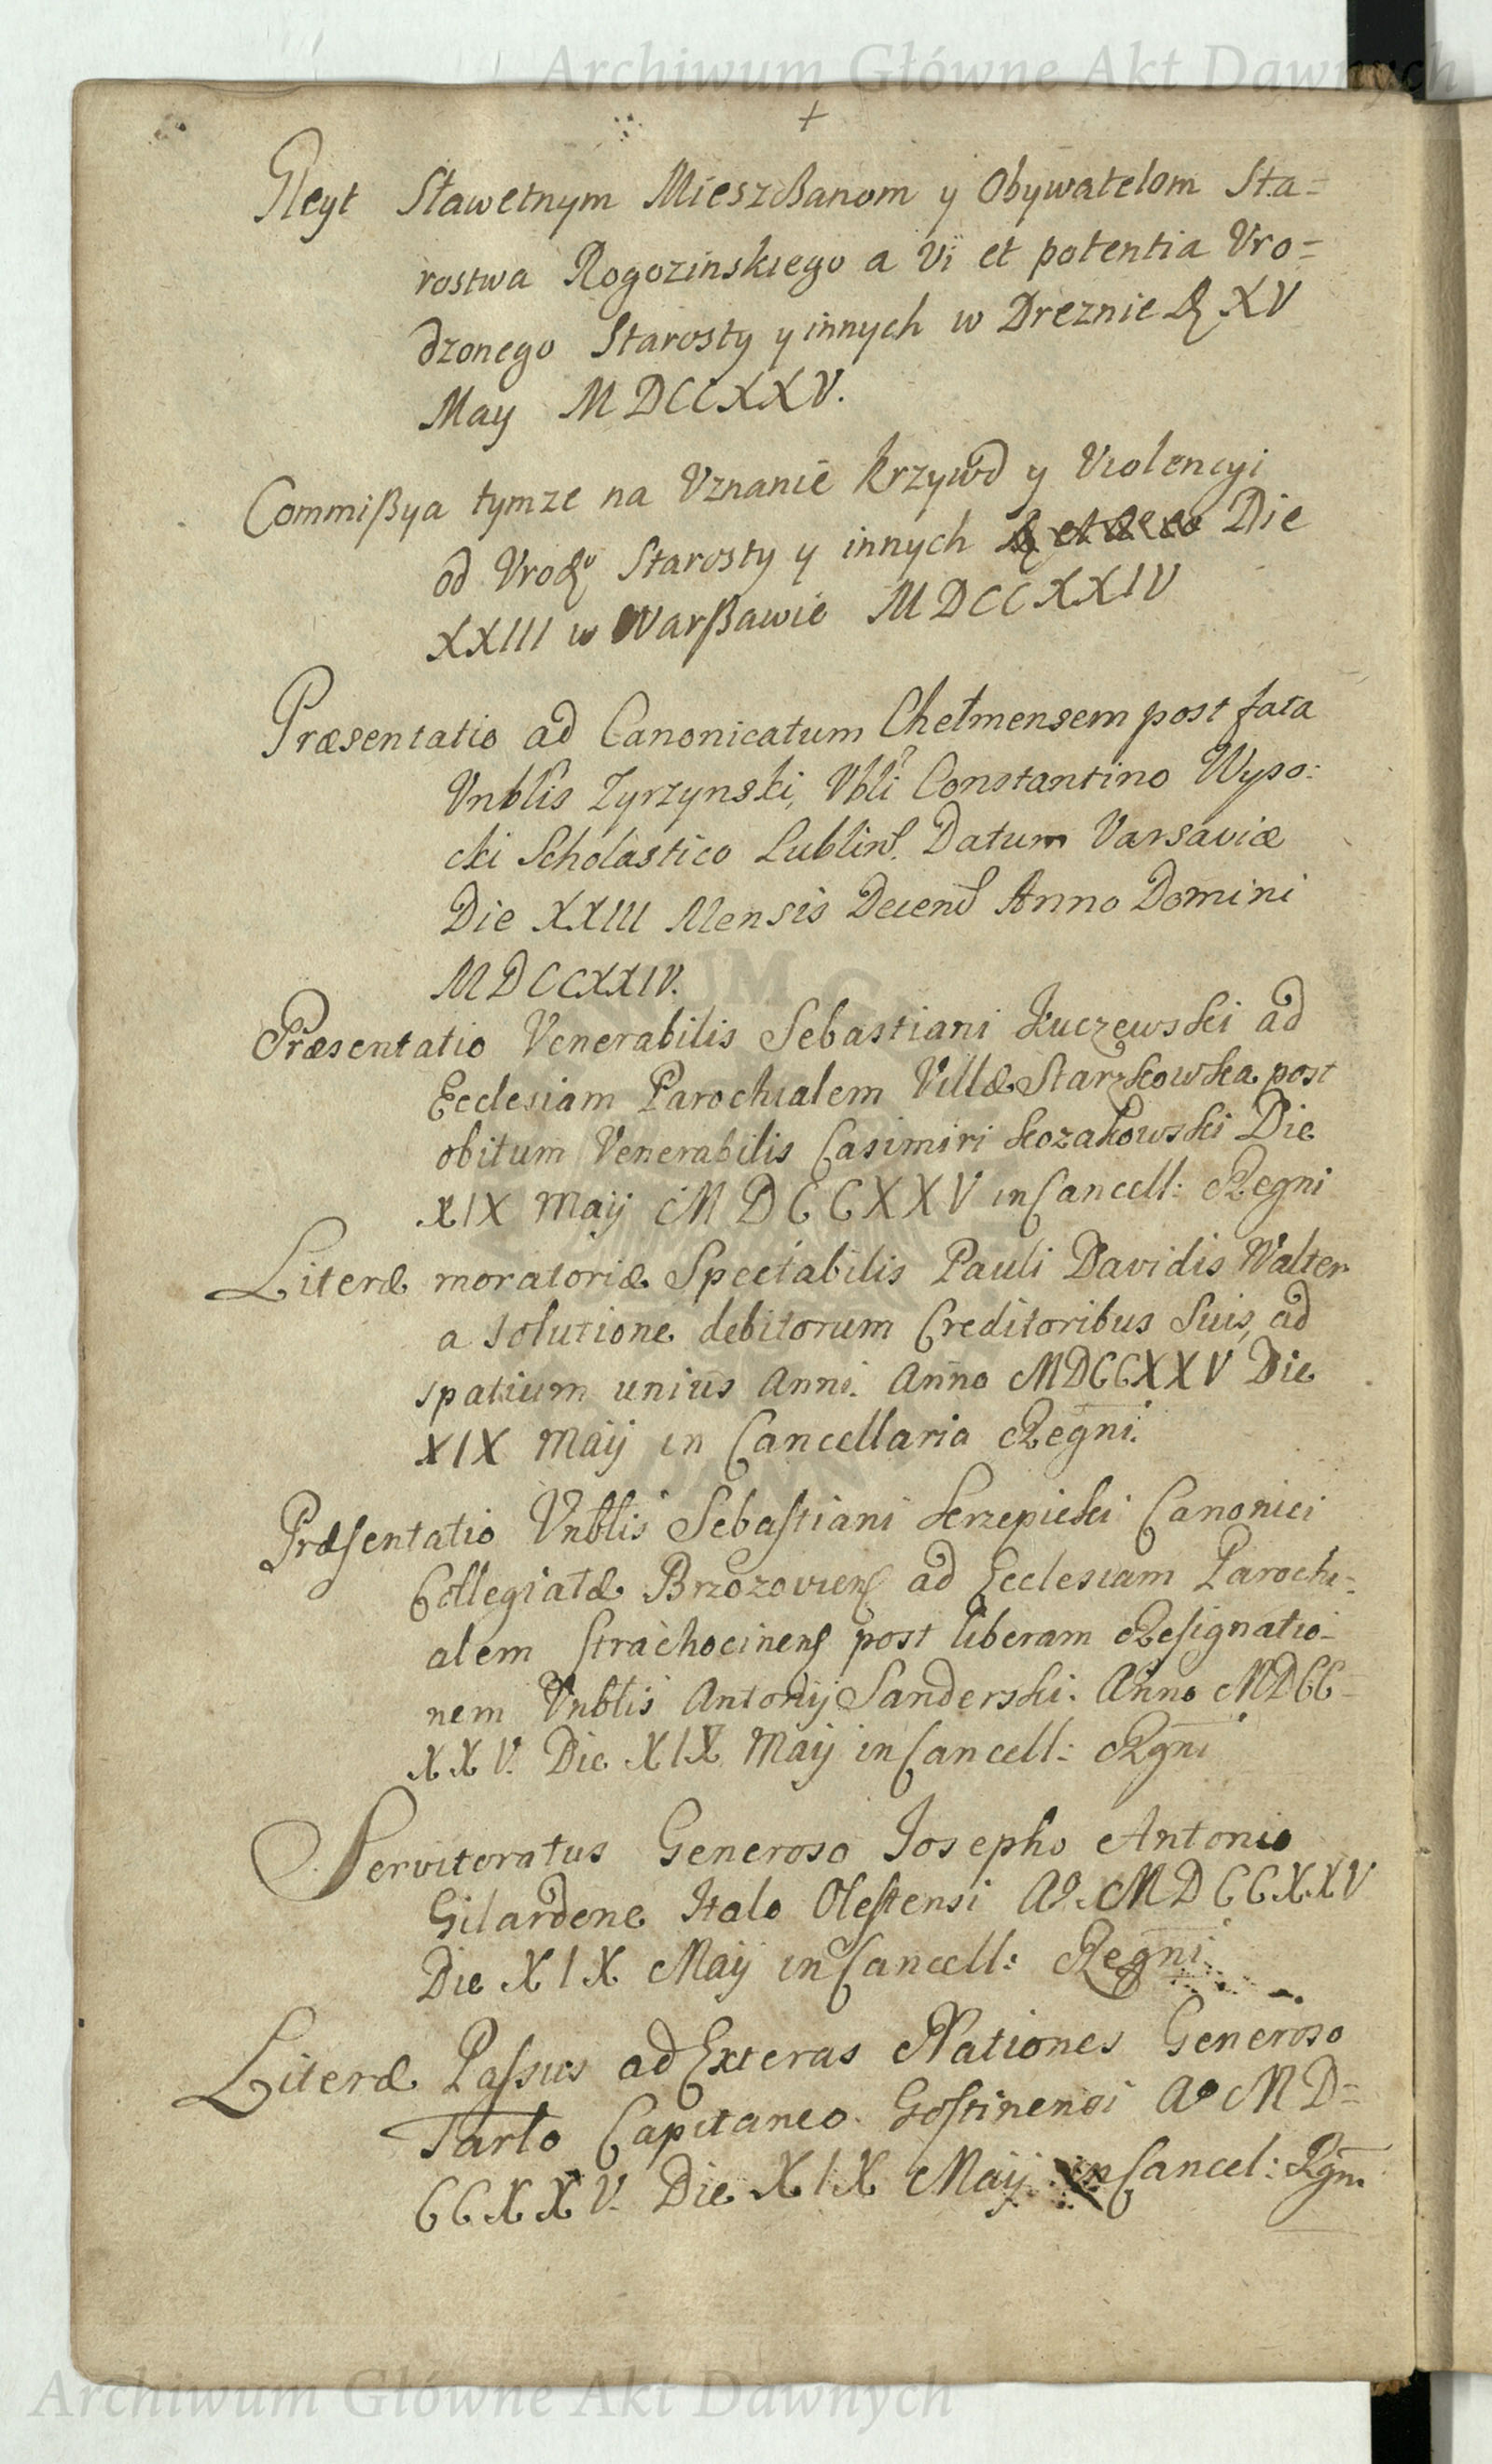 Archiwum Główne Akt Dawnych
+
Gleyt Sławetnym Mieszczanom y Obywatelom Sta=
rostwa Rogozinskiego a vi et potentia Vro=
dzonego Starosty y innych w Dreznie D. XV
May MDCCXXV.
Commißya tymze na Vznanie krzywd y Violencyi
od Vrodz° Starosty y innych Die
XXIII w Warßawie MDCCXXIV
Præsentatio ad Canonicatum Chełmensem post fata
Vnblis Zyrzynski, Vbli Constantino Wyso:
cki Scholastico Lublins. Datum Varsaviæ
Die XXIII Mensis Decenb Anno Domini
MDCCXXIV.
Præsentatio Venerabilis Sebastiani Kuczewski ad
Ecclesiam Parochialem Villæ Starzkowska post
obitum Venerabilis Casimiri Kozakowski Die
XIX Maij MDCCXXV in Cancell: Regni
Literæ moratoriæ Spectabilis Pauli Davidis Walter
a solutione debitorum Creditoribus Suis, ad
spatium unius Anni. Anno MDCCXXV Die
XIX Maij in Cancellaria Regni.
Præsentatio Vnblis Sebastiani Krzepicki Canonici
Collegiatæ Brzozoviens ad Ecclesiam Parochi=
alem Strachocinens post liberam Resignatio=
nem Vnblis Antonij Sanderski. Anno MDCC=
XXV. Die XIX Maij in Cancell: Rgni
Servitoratus Generoso Iosepho Antonio
Gilardene Italo Olestensi A° MDCCXXV
Die XIX Maij in Cancell: Regni.
Literæ Passus ad Exteras Nationes Generoso
Tarło Capitaneo Gostinensi A° MD=
CCXXV. Die XIX Maij in Cancel: Rgni
Archiwum Główne Akt Dawnych